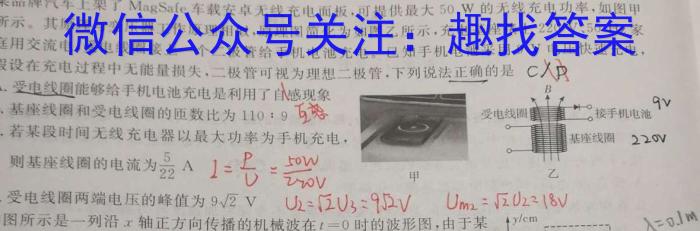 某品牌汽车上架了MagSafe车载安卓无线充电面板,可提供最大50 W的无线充电功率,如图甲
所示。其
微信公众号关注:趣找答案
庭用交流电
假设在充电过程中无能量损失,二极管可视为理想二极管,下列说法正确的 C
A.受电线圈能够给手机电池充电是利用了自感现象
.基座线圈和受电线圈的匝数比为110:9 互感
.若某段时间无线充电器以最大功率为手机充电,
则基座线圈的电流为5/22 A I=P/U=50W/220V
.受电线圈两端电压的峰值为9√2 V U₂=√2U₃=9√2V Um₂=√2U₂=18V
B
受电线圈
接手机电池 9V
基座线圈 220V
甲
乙
图所示是一列沿x轴正方向传播的机械波在t=0时的波形图,由于某
y/cm
λ=0.1m